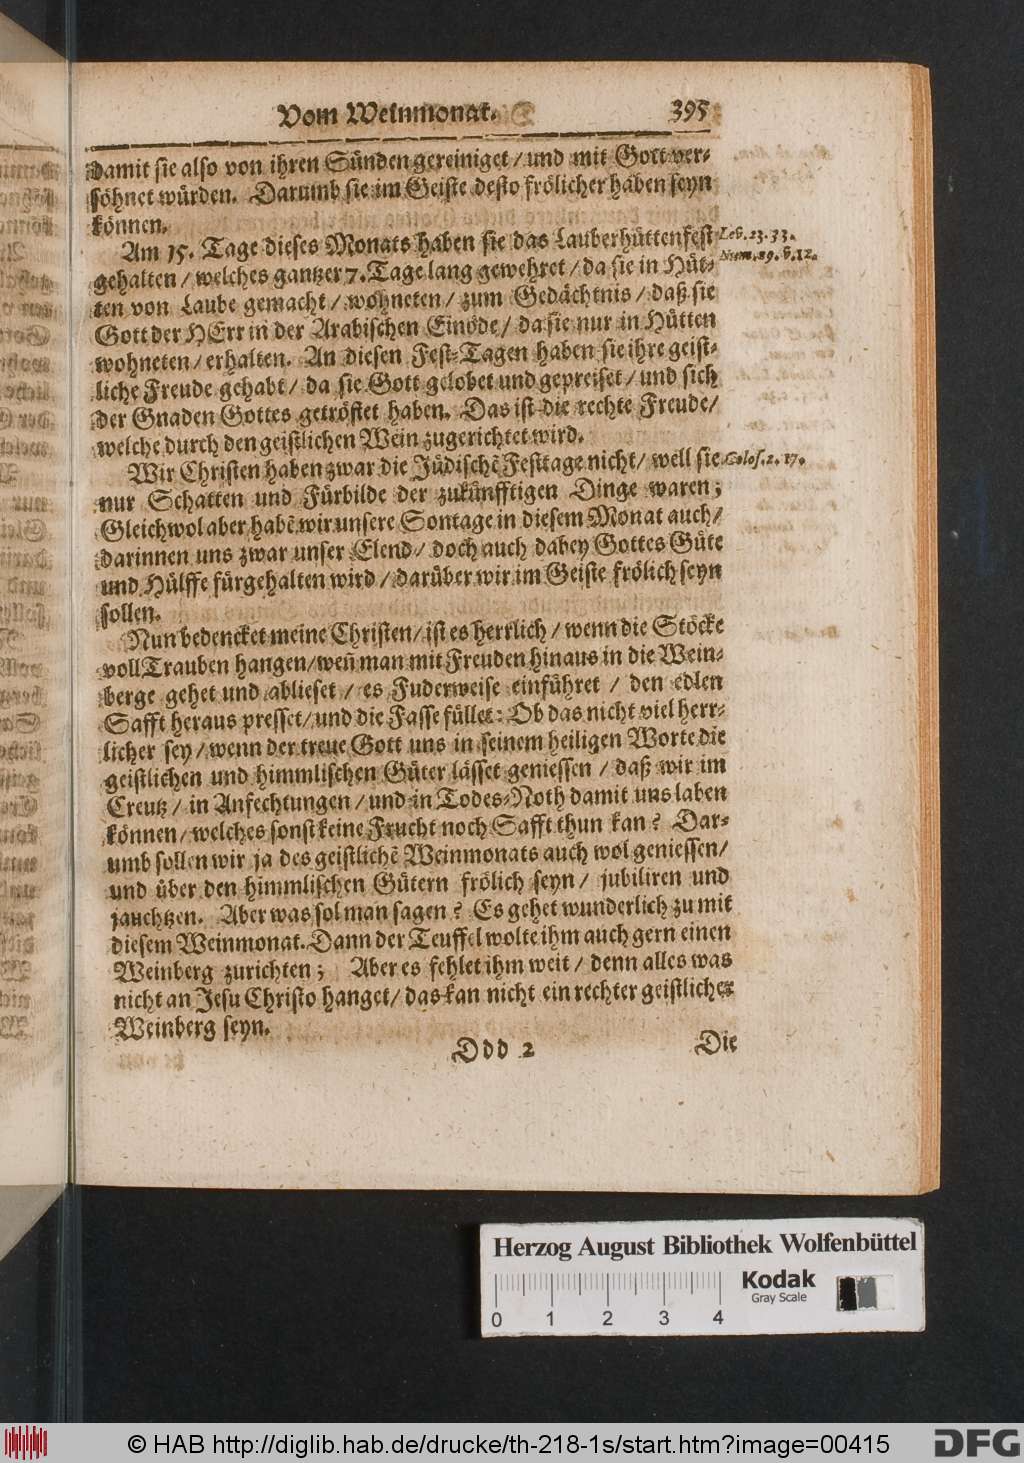 Vom Weinmonat. 395
damit sie also von ihren Sünden gereiniget / und mit Gott ver-
söhnet würden. Darumb sie im Geiste desto frölicher haben seyn
können.
Am 15. Tage dieses Monats haben sie das Lauberhüttenfest
Lev. 23. 33.
gehalten / welches gantzer 7. Tage lang gewehret / da sie in Hüt-
Num. 29. v. 12.
ten von Laube gemacht / wohneten / zum Gedächtnis / daß sie
Gott der HErr in der Arabischen Einöde / da sie nur in Hütten
wohneten / erhalten. An diesen Fest-Tagen haben sie ihre geist-
liche Freude gehabt / da sie Gott gelobet und gepreiset / und sich
der Gnaden Gottes getröstet haben. Das ist die rechte Freude /
welche durch den geistlichen Wein zugerichtet wird.
Wir Christen haben zwar die Jüdischē Festtage nicht / weil sie
Colos. 2. 17.
nur Schatten und Fürbilde der zukünfftigen Dinge waren;
Gleichwol aber habē wir unsere Sontage in diesem Monat auch /
darinnen uns zwar unser Elend / doch auch dabey Gottes Güte
und Hülffe fürgehalten wird / darüber wir im Geiste frölich seyn
sollen.
Nun bedencket meine Christen / ist es herrlich / wenn die Stöcke
voll Trauben hangen / weñ man mit Freuden hinaus in die Wein-
berge gehet und ablieset / es Fuderweise einführet / den edlen
Safft heraus presset / und die Fasse füllet: Ob das nicht viel herr-
licher sey / wenn der treue Gott uns in seinem heiligen Worte die
geistlichen und himmlischen Güter lässet geniessen / daß wir im
Creutz / in Anfechtungen / und in Todes-Noth damit uns laben
können / welches sonst keine Frucht noch Safft thun kan? Dar-
umb sollen wir ja des geistlichē Weinmonats auch wol geniessen /
und über den himmlischen Gütern frölich seyn / jubiliren und
jauchtzen. Aber was sol man sagen? Es gehet wunderlich zu mit
diesem Weinmonat. Dann der Teuffel wolte ihm auch gern einen
Weinberg zurichten; Aber es fehlet ihm weit / denn alles was
nicht an Jesu Christo hanget / das kan nicht ein rechter geistlicher
Weinberg seyn.
Ddd 2 Die
Herzog August Bibliothek Wolfenbüttel
Kodak
Gray Scale
0 1 2 3 4
© HAB http://diglib.hab.de/drucke/th-218-1s/start.htm?image=00415
DFG